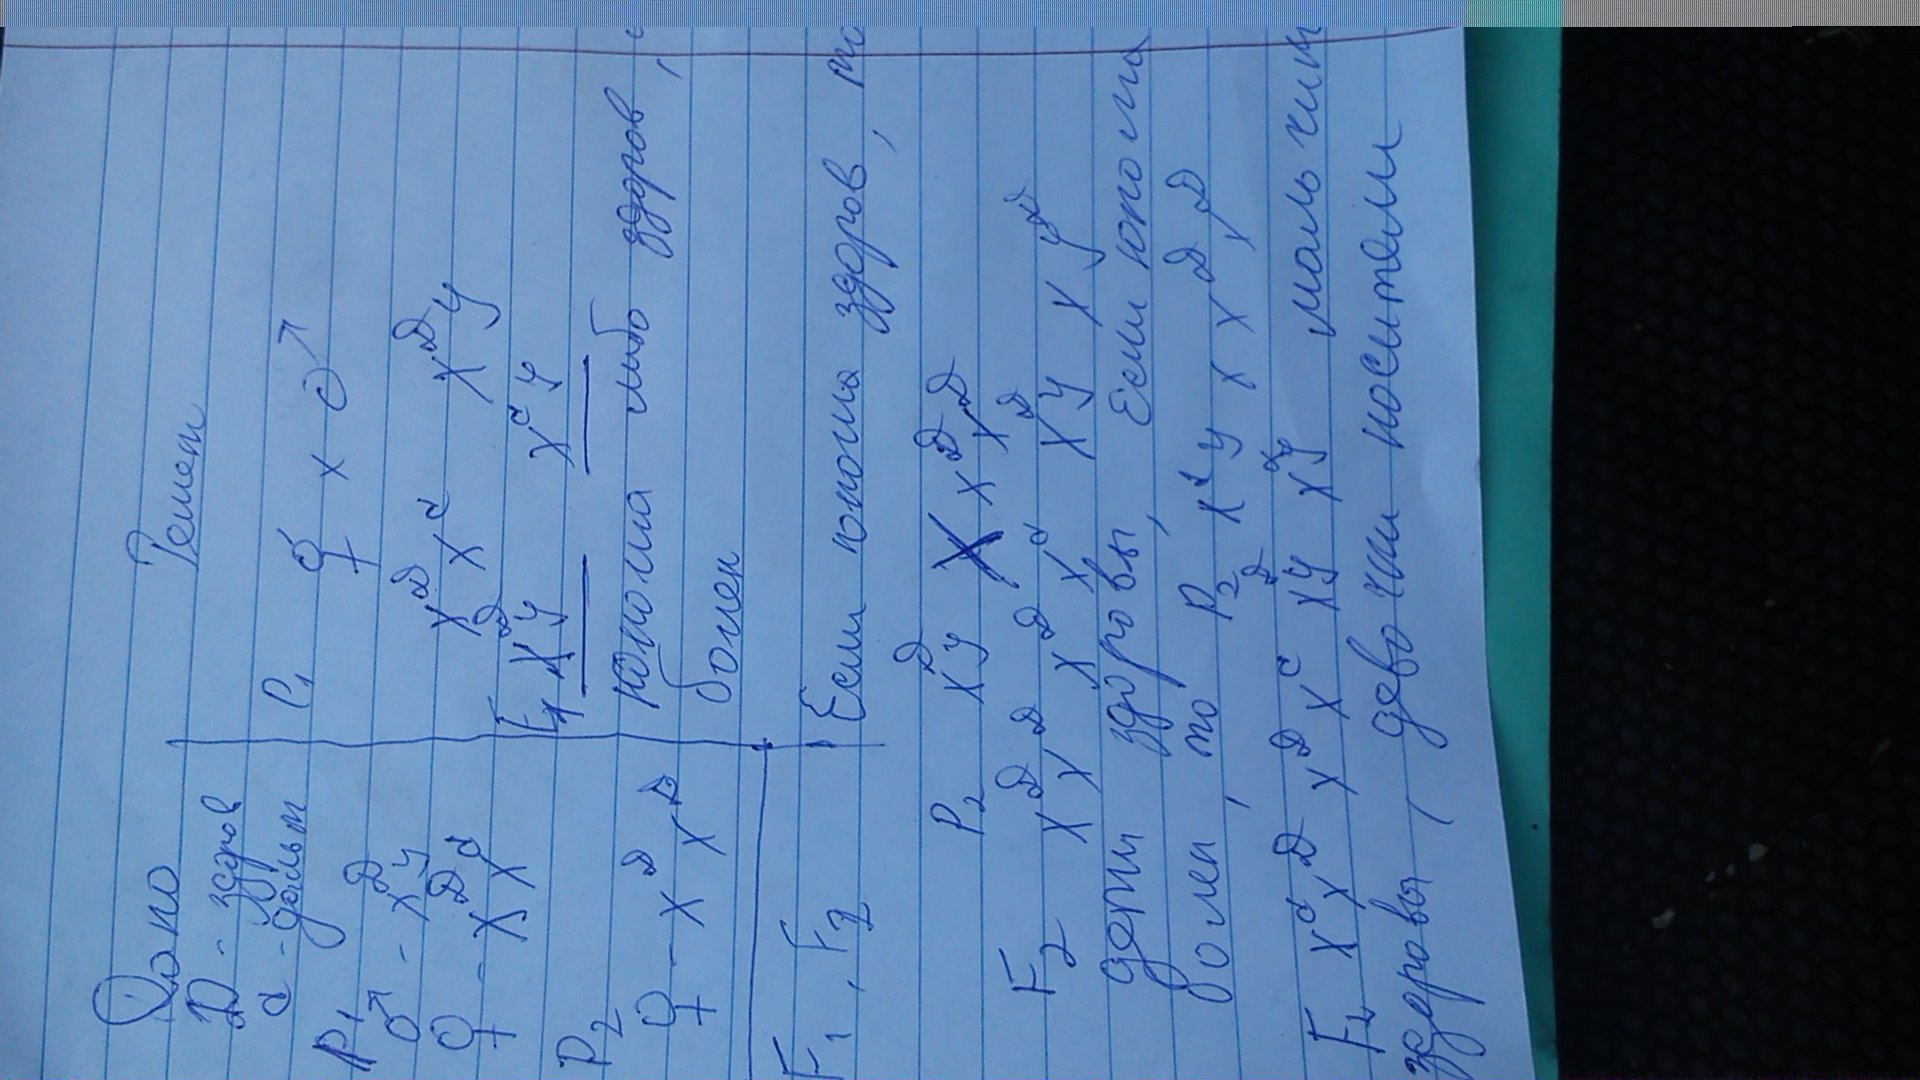 Дано
D - здоров
d - дальт
P₁
♂ - XᴰY
♀ - XᴰXᵈ
P₂
♀ - XᴰXᴰ
F₁, F₂
Решен
P₁ ♀ x ♂
XᴰXᵈ XᴰY
F₁ XᴰY XᵈY
Юноша либо здоров,
болен
Если юноша здоров, то
P₂ XᴰY X XᴰXᴰ
F₂ XᴰXᴰ XᴰXᵈ XᴰY XYᴰ
дети здоровы, Если юноша
болен, то P₂ XᵈY x XᴰXᴰ
F₂ XᵈXᴰ XᴰXᵈ XᴰY XYᵈ мальчики
здоровы, девочки носители